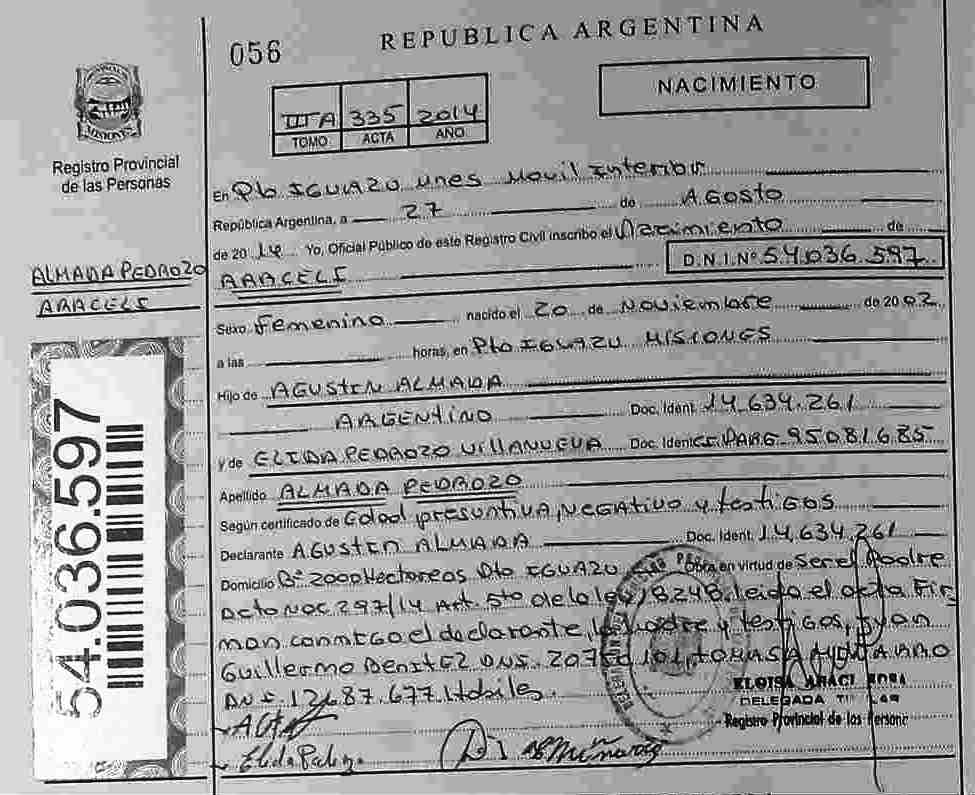 056
REPUBLICA ARGENTINA
NACIMIENTO
IIIA 335 2014
TOMO ACTA AÑO
MISIONES
Registro Provincial
de las Personas
ALMADA PEDROZO
ARACELI
54.036.597
En Pto IGUAZU unes Movil Interior
República Argentina, a 27 de AGOSTO
de 2014 Yo, Oficial Público de este Registro Civil inscribo el Nacimiento de
ARACELI D.N.I.Nº 54.036.597
Sexo Femenino nacido el 20 de Noviembre de 2002
a las horas, en Pto IGUAZU MISIONES
Hijo de AGUSTIN ALMADA
ARGENTINO Doc. Ident. 14.634.261
y de ELIDA PEDROZO VILLANUEVA Doc. Ident. CI. PARG. 95081685
Apellido ALMADA PEDROZO
Según certificado de Edad presuntiva, NEGAtivo y testigos
Declarante AGUSTIN ALMADA Doc. Ident. 14.634.261
Domicilio Bº 2000 Hectareas Pto IGUAZU Obra en virtud de Ser el Padre
Acto NOC 297/14 Art. 5to de la ley 18248. leida el acta Fir
man conmigo el declarante, la Madre y testigos, Juan
Guillermo BenitEZ DNI. TOMASA
DNI. 12.687.677. Habiles.
Elida Pedrozo
ELOISA
DELEGADA TITULAR
Registro Provincial de las Persona